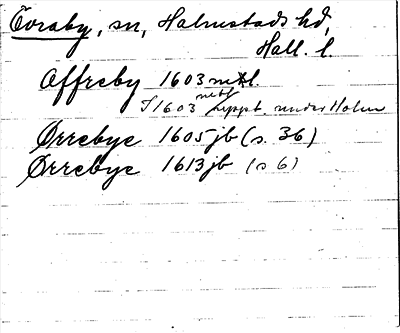 Eoraby, sn, Halmstads hd,
Hall. l.
Offreby 1603 mtl.
I 1603 mtl uppt. under Holm
Ørrebye 1605 jb (s. 36)
Ørrebye 1613 jb (s 6)